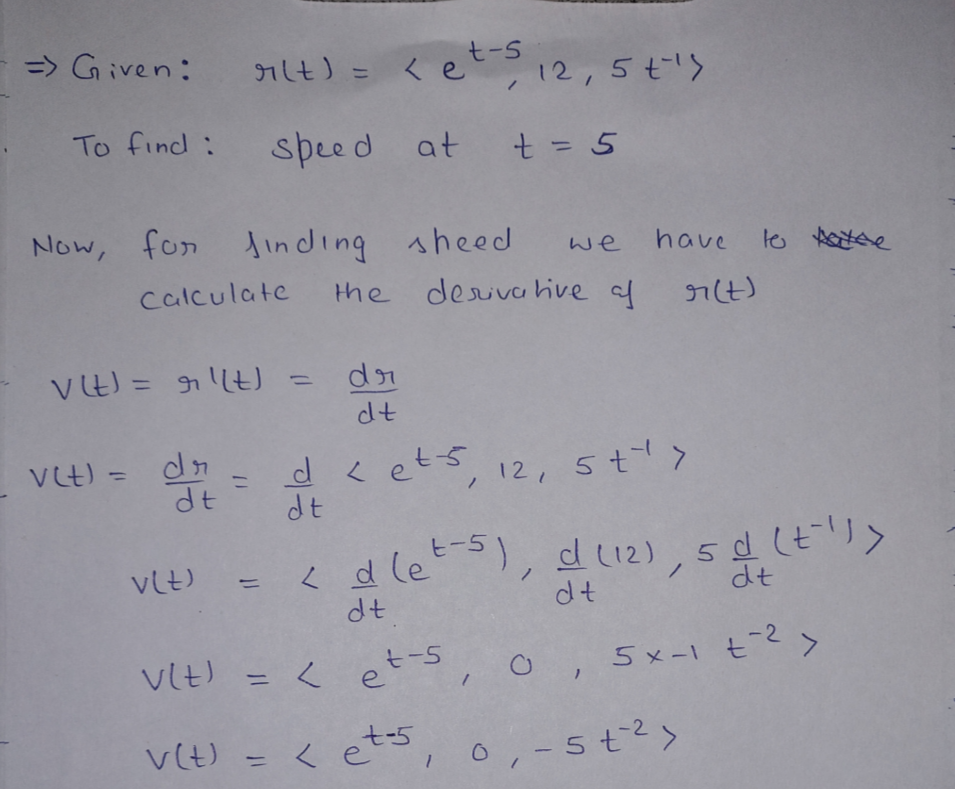 ⇒ Given: r(t) = < e^{t-5}, 12, 5 t^{-1} >
To find: speed at t = 5
Now, for finding speed we have to
calculate the derivative of r(t)
v(t) = r'(t) = dr/dt
v(t) = dr/dt = d/dt < e^{t-5}, 12, 5 t^{-1} >
v(t) = < d/dt (e^{t-5}), d/dt (12), 5 d/dt (t^{-1}) >
v(t) = < e^{t-5}, 0, 5 x -1 t^{-2} >
v(t) = < e^{t-5}, 0, -5 t^{-2} >